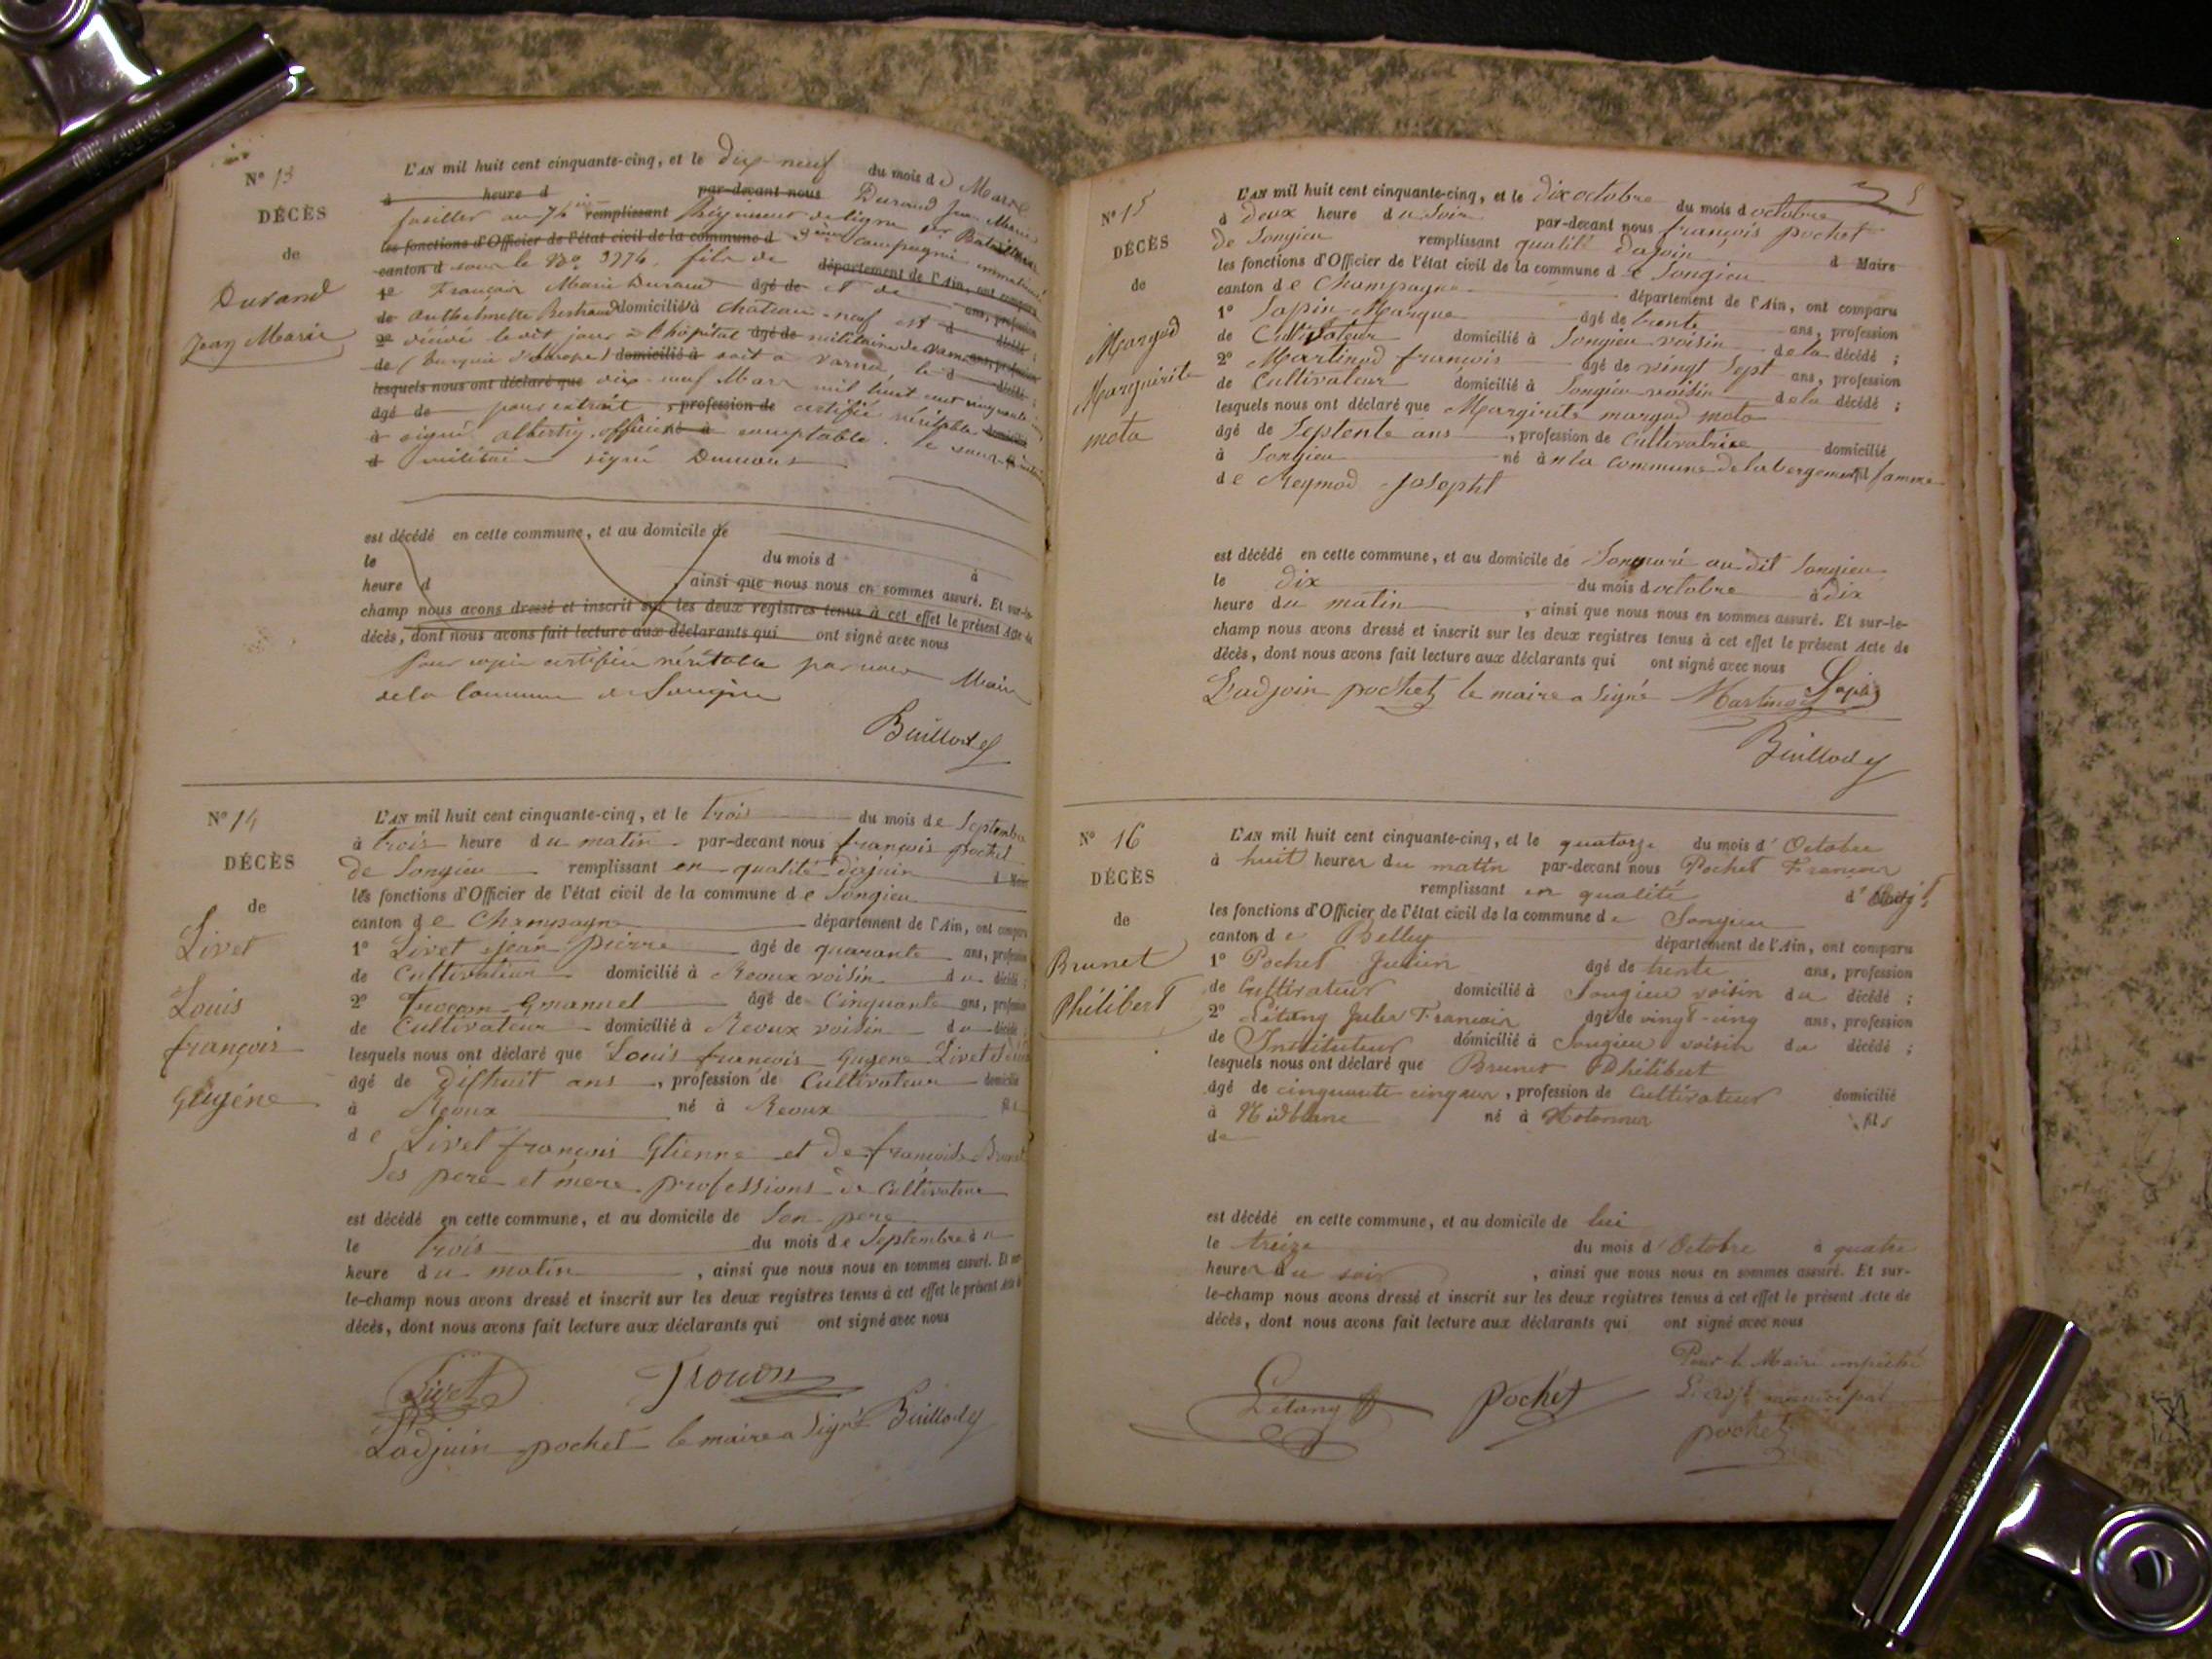 N° 13
DÉCÈS
de
Durand
Jean Marie
L'AN mil huit cent cinquante-cinq, et le dix-neuf du mois de Mars
à heure d par-devant nous Durand Jean Marie
fusilier au 74 remplissant Régiment de ligne Bataillon
les fonctions d'Officier de l'état civil de la commune d compagnie immatriculé
canton d sous le N° 3974. fils de département de l'Ain, ont comparu
1° François Marie Durand âgé de et de ans, profession
de Anthelmette Bertrand domicilié à Chateau-neuf est d décédé ;
2° décédé le dit jour à l'hôpital âgé de militaire de Varna ans, profession
de (Turquie d'Europe) domicilié à soit à Varna le d décédé ;
lesquels nous ont déclaré que dix-neuf Mars mil huit cent cinquante
âgé de pour extrait , profession de certifié véritable domicilié
à signé officier à comptable. le sous
d militaire signé
est décédé en cette commune, et au domicile de
le du mois d à
heure d , ainsi que nous nous en sommes assuré. Et sur-le-
champ nous avons dressé et inscrit sur les deux registres tenus à cet effet le présent Acte de
décès, dont nous avons fait lecture aux déclarants qui ont signé avec nous
Pour copie certifiée véritable par nous Maire
de la Commune de Songieu
Buillody
N° 14
DÉCÈS
de
Livet
Louis
françois
Gugéne
L'AN mil huit cent cinquante-cinq, et le trois du mois de Septembre
à trois heure du matin par-devant nous françois pochet
de Songieu remplissant en qualité d'ajoin d Maire
les fonctions d'Officier de l'état civil de la commune de Songieu
canton de Champagne département de l'Ain, ont comparu
1° Livet jean pierre âgé de quarante ans, profession
de Cultivateur domicilié à Reoux voisin du décédé ;
2° Gmanuel âgé de Cinquante ans, profession
de Cultivateur domicilié à Reoux voisin du décédé ;
lesquels nous ont déclaré que Louis françois Gugene Livet
âgé de dishuit ans , profession de Cultivateur domicilié
à Reoux né à Reoux fils
de Livet françois Gtienne et de françoise Brunet
Ses pere et mere professions de Cultivateur
est décédé en cette commune, et au domicile de Son pere
le trois du mois de Septembre à
heure du matin , ainsi que nous nous en sommes assuré. Et sur-
le-champ nous avons dressé et inscrit sur les deux registres tenus à cet effet le présent Acte de
décès, dont nous avons fait lecture aux déclarants qui ont signé avec nous
Livet Trouon
Ladjuin pochet le maire a Signé Buillody
5
N° 15
DÉCÈS
de
Margod
Marguirite
mota
L'AN mil huit cent cinquante-cinq, et le dix octobre du mois d octobre
à Deux heure du Soir par-devant nous françois pochet
De Songieu remplissant qualité Dajoin d Maire
les fonctions d'Officier de l'état civil de la commune de Songieu
canton de Champagne département de l'Ain, ont comparu
1° Sapin Marque âgé de trente ans, profession
de Cultivateur domicilié à Songieu voisin de la décédé ;
2° Martinod françois âgé de vingt Sept ans, profession
de Cultivateur domicilié à Songieu voisin de la décédé ;
lesquels nous ont déclaré que Margirite margod mota
âgé de Septente ans , profession de Cultivatrice domicilié
à Songieu né à n la commune de labergement fil famme
de Reymod Josepht
est décédé en cette commune, et au domicile de au dit Songieu
le dix du mois d octobre à dix
heure du matin , ainsi que nous nous en sommes assuré. Et sur-le-
champ nous avons dressé et inscrit sur les deux registres tenus à cet effet le présent Acte de
décès, dont nous avons fait lecture aux déclarants qui ont signé avec nous
Ladjoin pochet le maire a Signé Martinod Sapin
Buillody
N° 16
DÉCÈS
de
Brunet
Philibert
L'AN mil huit cent cinquante-cinq, et le quatorze du mois d'Octobre
à huit heures du matin par-devant nous Pochet François
remplissant en qualité d'
les fonctions d'Officier de l'état civil de la commune de Songieu
canton de Belley département de l'Ain, ont comparu
1° Pochet Julien âgé de trente ans, profession
de Cultivateur domicilié à Songieu voisin du décédé ;
2° Létang Jules François âgé de vingt-cinq ans, profession
de Instituteur domicilié à Songieu voisin du décédé ;
lesquels nous ont déclaré que Brunet Philibert
âgé de cinquante cinq ans, profession de Cultivateur domicilié
à Nidblanc né à Hotonnes fils
de
est décédé en cette commune, et au domicile de lui
le treize du mois d'Octobre à quatre
heures du soir , ainsi que nous nous en sommes assuré. Et sur-
le-champ nous avons dressé et inscrit sur les deux registres tenus à cet effet le présent Acte de
décès, dont nous avons fait lecture aux déclarants qui ont signé avec nous
Pour le Maire empêché
Létang pochet L'adjt municipal
pochet